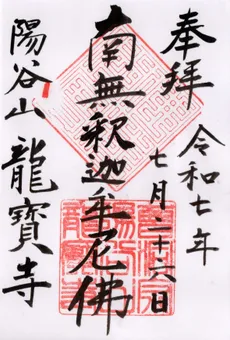 奉拝
令和七年
七月二十六日
南無釈迦牟尼佛
陽谷山
龍寳寺